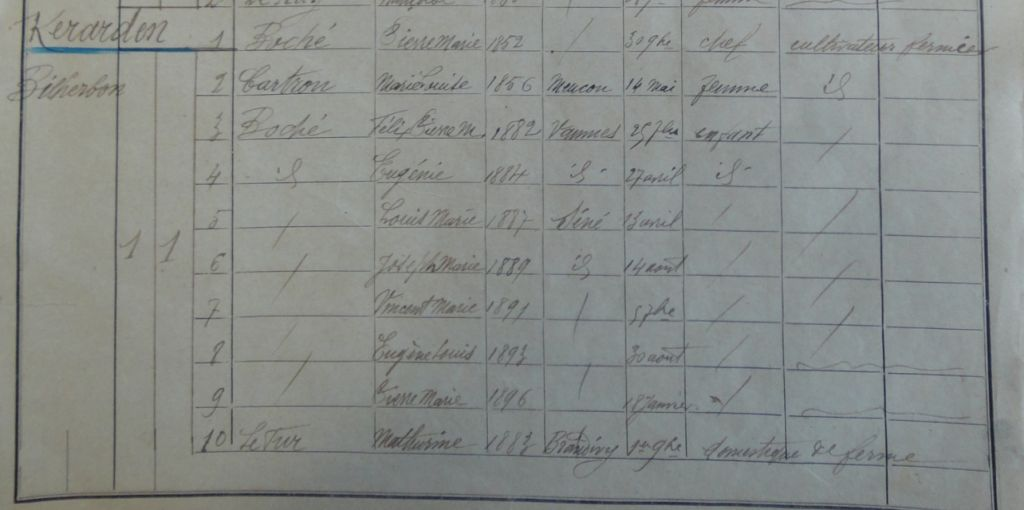 Kerarden
1 Roché Pierre Marie 1852 / 30 9bre chef cultivateur fermier
Bilherbon 2 Cartron Marie Louise 1856 Meucon 14 mai femme id
3 Roché Félix Pierre M. 1882 Vannes 25 7bre enfant /
4 id Eugénie 1884 id 27 avril id
5 / Louis Marie 1887 Séné 13 avril / /
1 1
6 / Joseph Marie 1889 id 14 août / /
7 / Vincent Marie 1891 / 5 7bre / /
8 / Eugène Louis 1893 30 août /
9 / Pierre Marie 1896 / 18 Janvier /
10 Le Tur Mathurine 1883 Brandivy 1er 9bre domestique de ferme